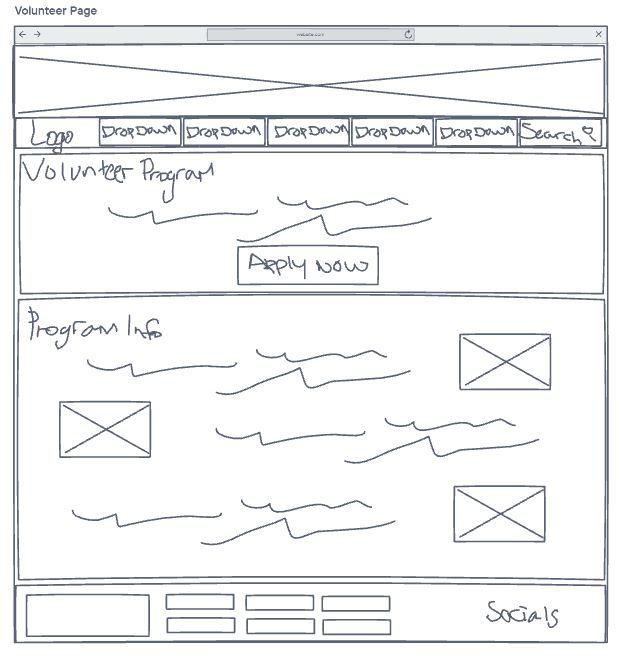 Volunteer Page
website.com
Logo DropDown DropDown DropDown DropDown DropDown Search
Volunteer Program
Apply Now
Program Info
Socials